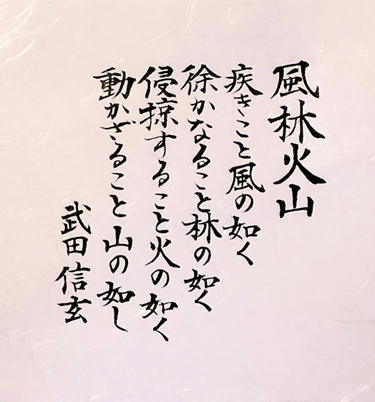 風林火山
疾きこと風の如く
徐かなること林の如く
侵掠すること火の如く
動かざること山の如し
武田信玄